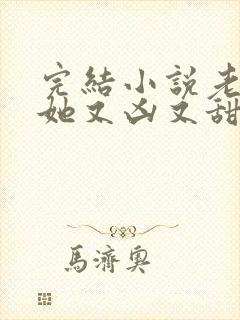 完結小說老
她又凶又甜
馬濟奧